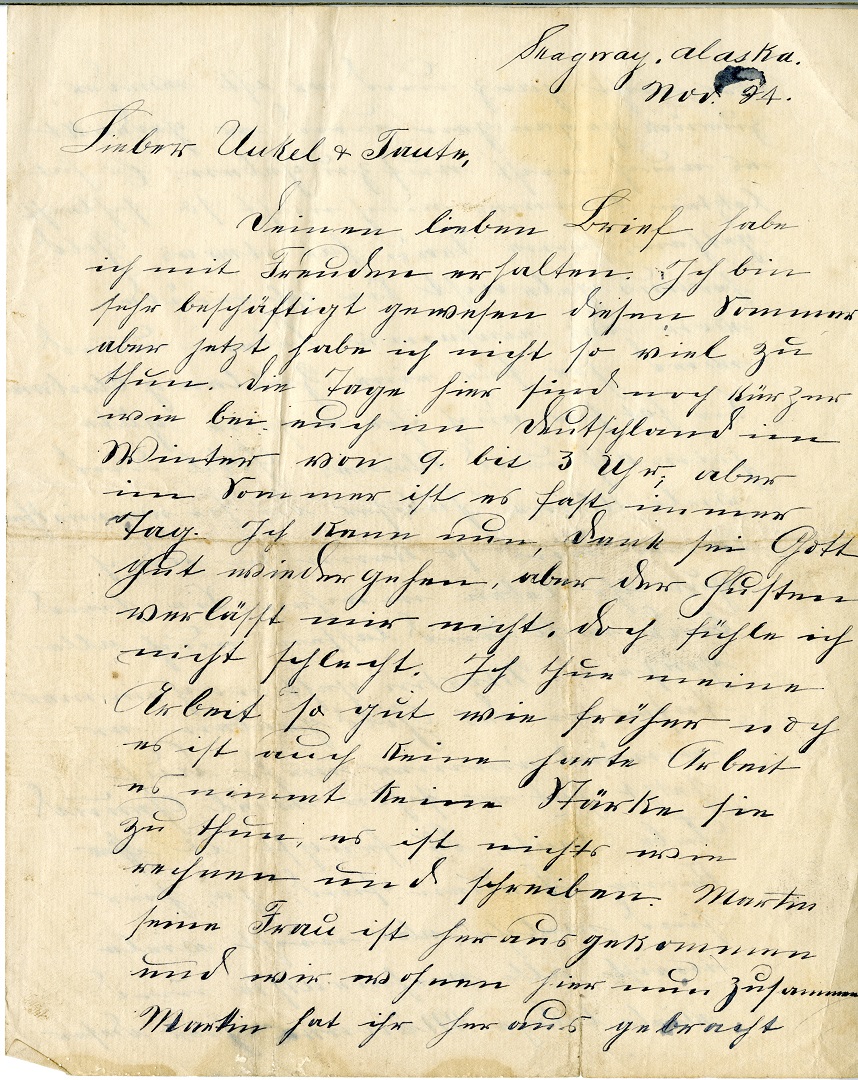 Skagway. Alaska.
Nov. 24.
Lieber Unkel & Tante,
Deinen lieben Brief habe
ich mit Freuden erhalten. Ich bin
sehr beschäftigt gewesen diesen Sommer
aber jetzt habe ich nicht so viel zu
thun. Die Tage hier sind noch kürzer
wie bei euch im Deutschland im
Winter von 9. bis 3 Uhr; aber
im Sommer ist es fast immer
Tag. Ich kann nun, Dank sei Gott
gut wieder gehen, aber der Husten
verlässt mir nicht. doch fühle ich
nicht schlecht. Ich thue meine
Arbeit so gut wie früher noch
es ist auch keine harte Arbeit
es nimmt keine Stärke sie
zu thun, es ist nichts wie
rechnen und schreiben. Martin
seine Frau ist herausgekommen
und wir wohnen hier nun zusammen
Martin hat ihr heraus gebracht